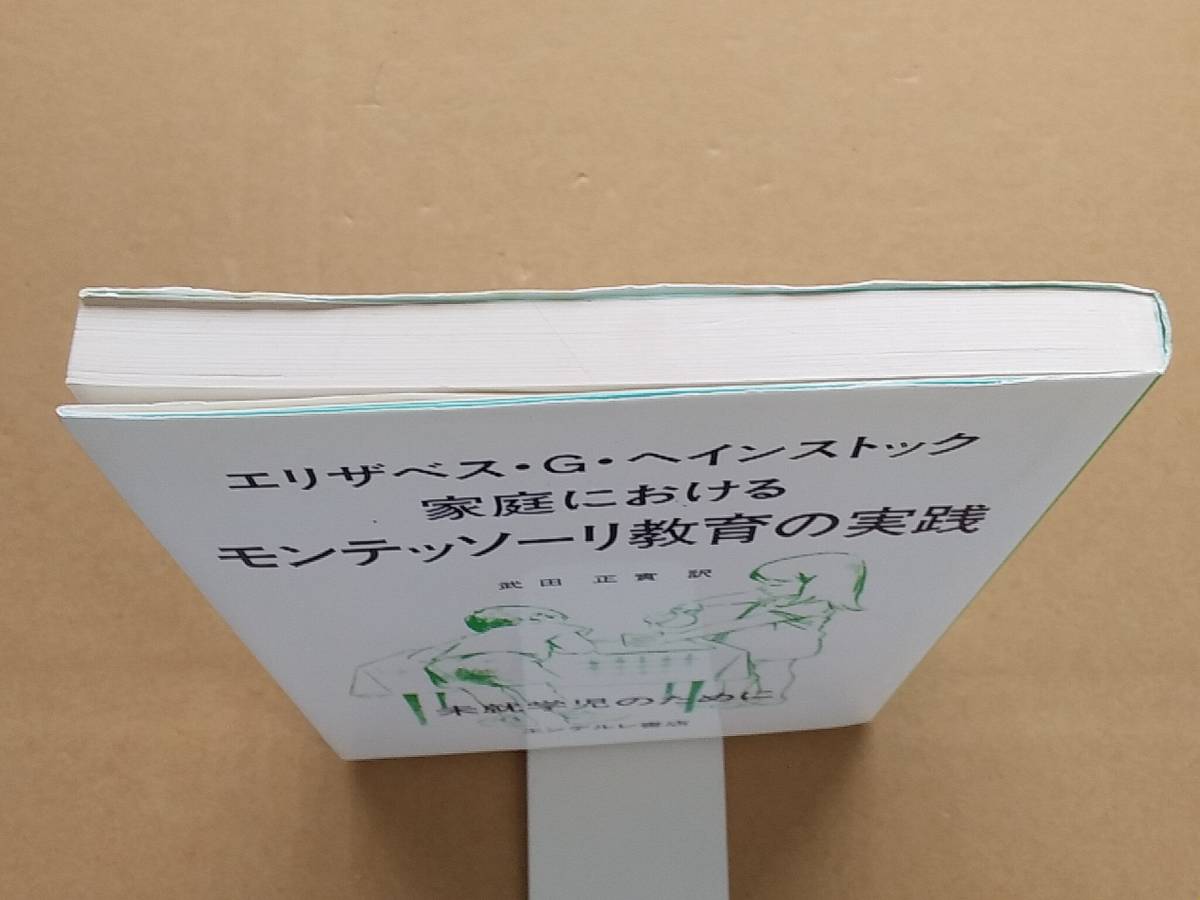 エリザベス・G・ヘインストック
家庭における
モンテッソーリ教育の実践
武田 正實 訳
未就学児のために
エンデルレ書店